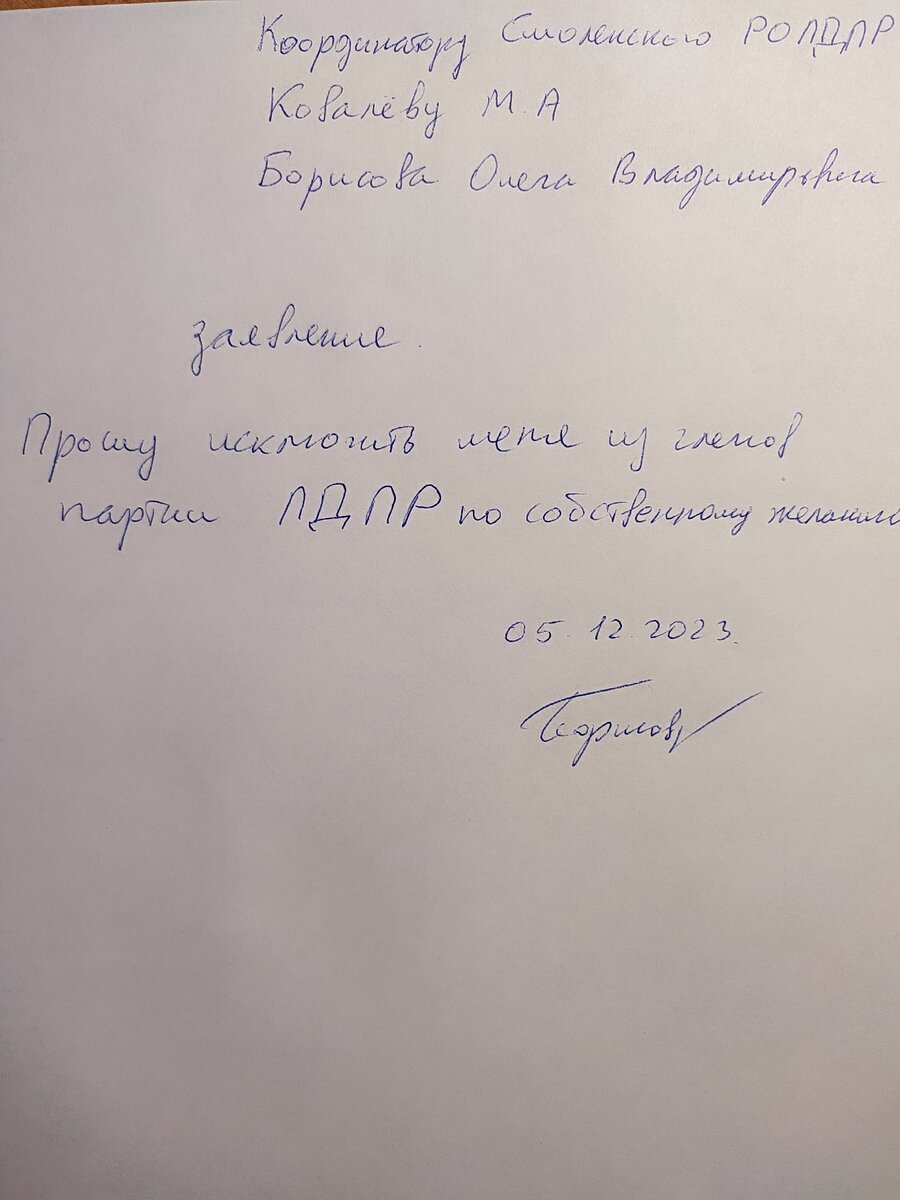 Координатору Смоленского РОЛДПР
Ковалёву М.А
Борисова Олега Владимировича
заявление.
Прошу исключить меня из членов
партии ЛДПР по собственному желанию
05.12.2023.
Борисов